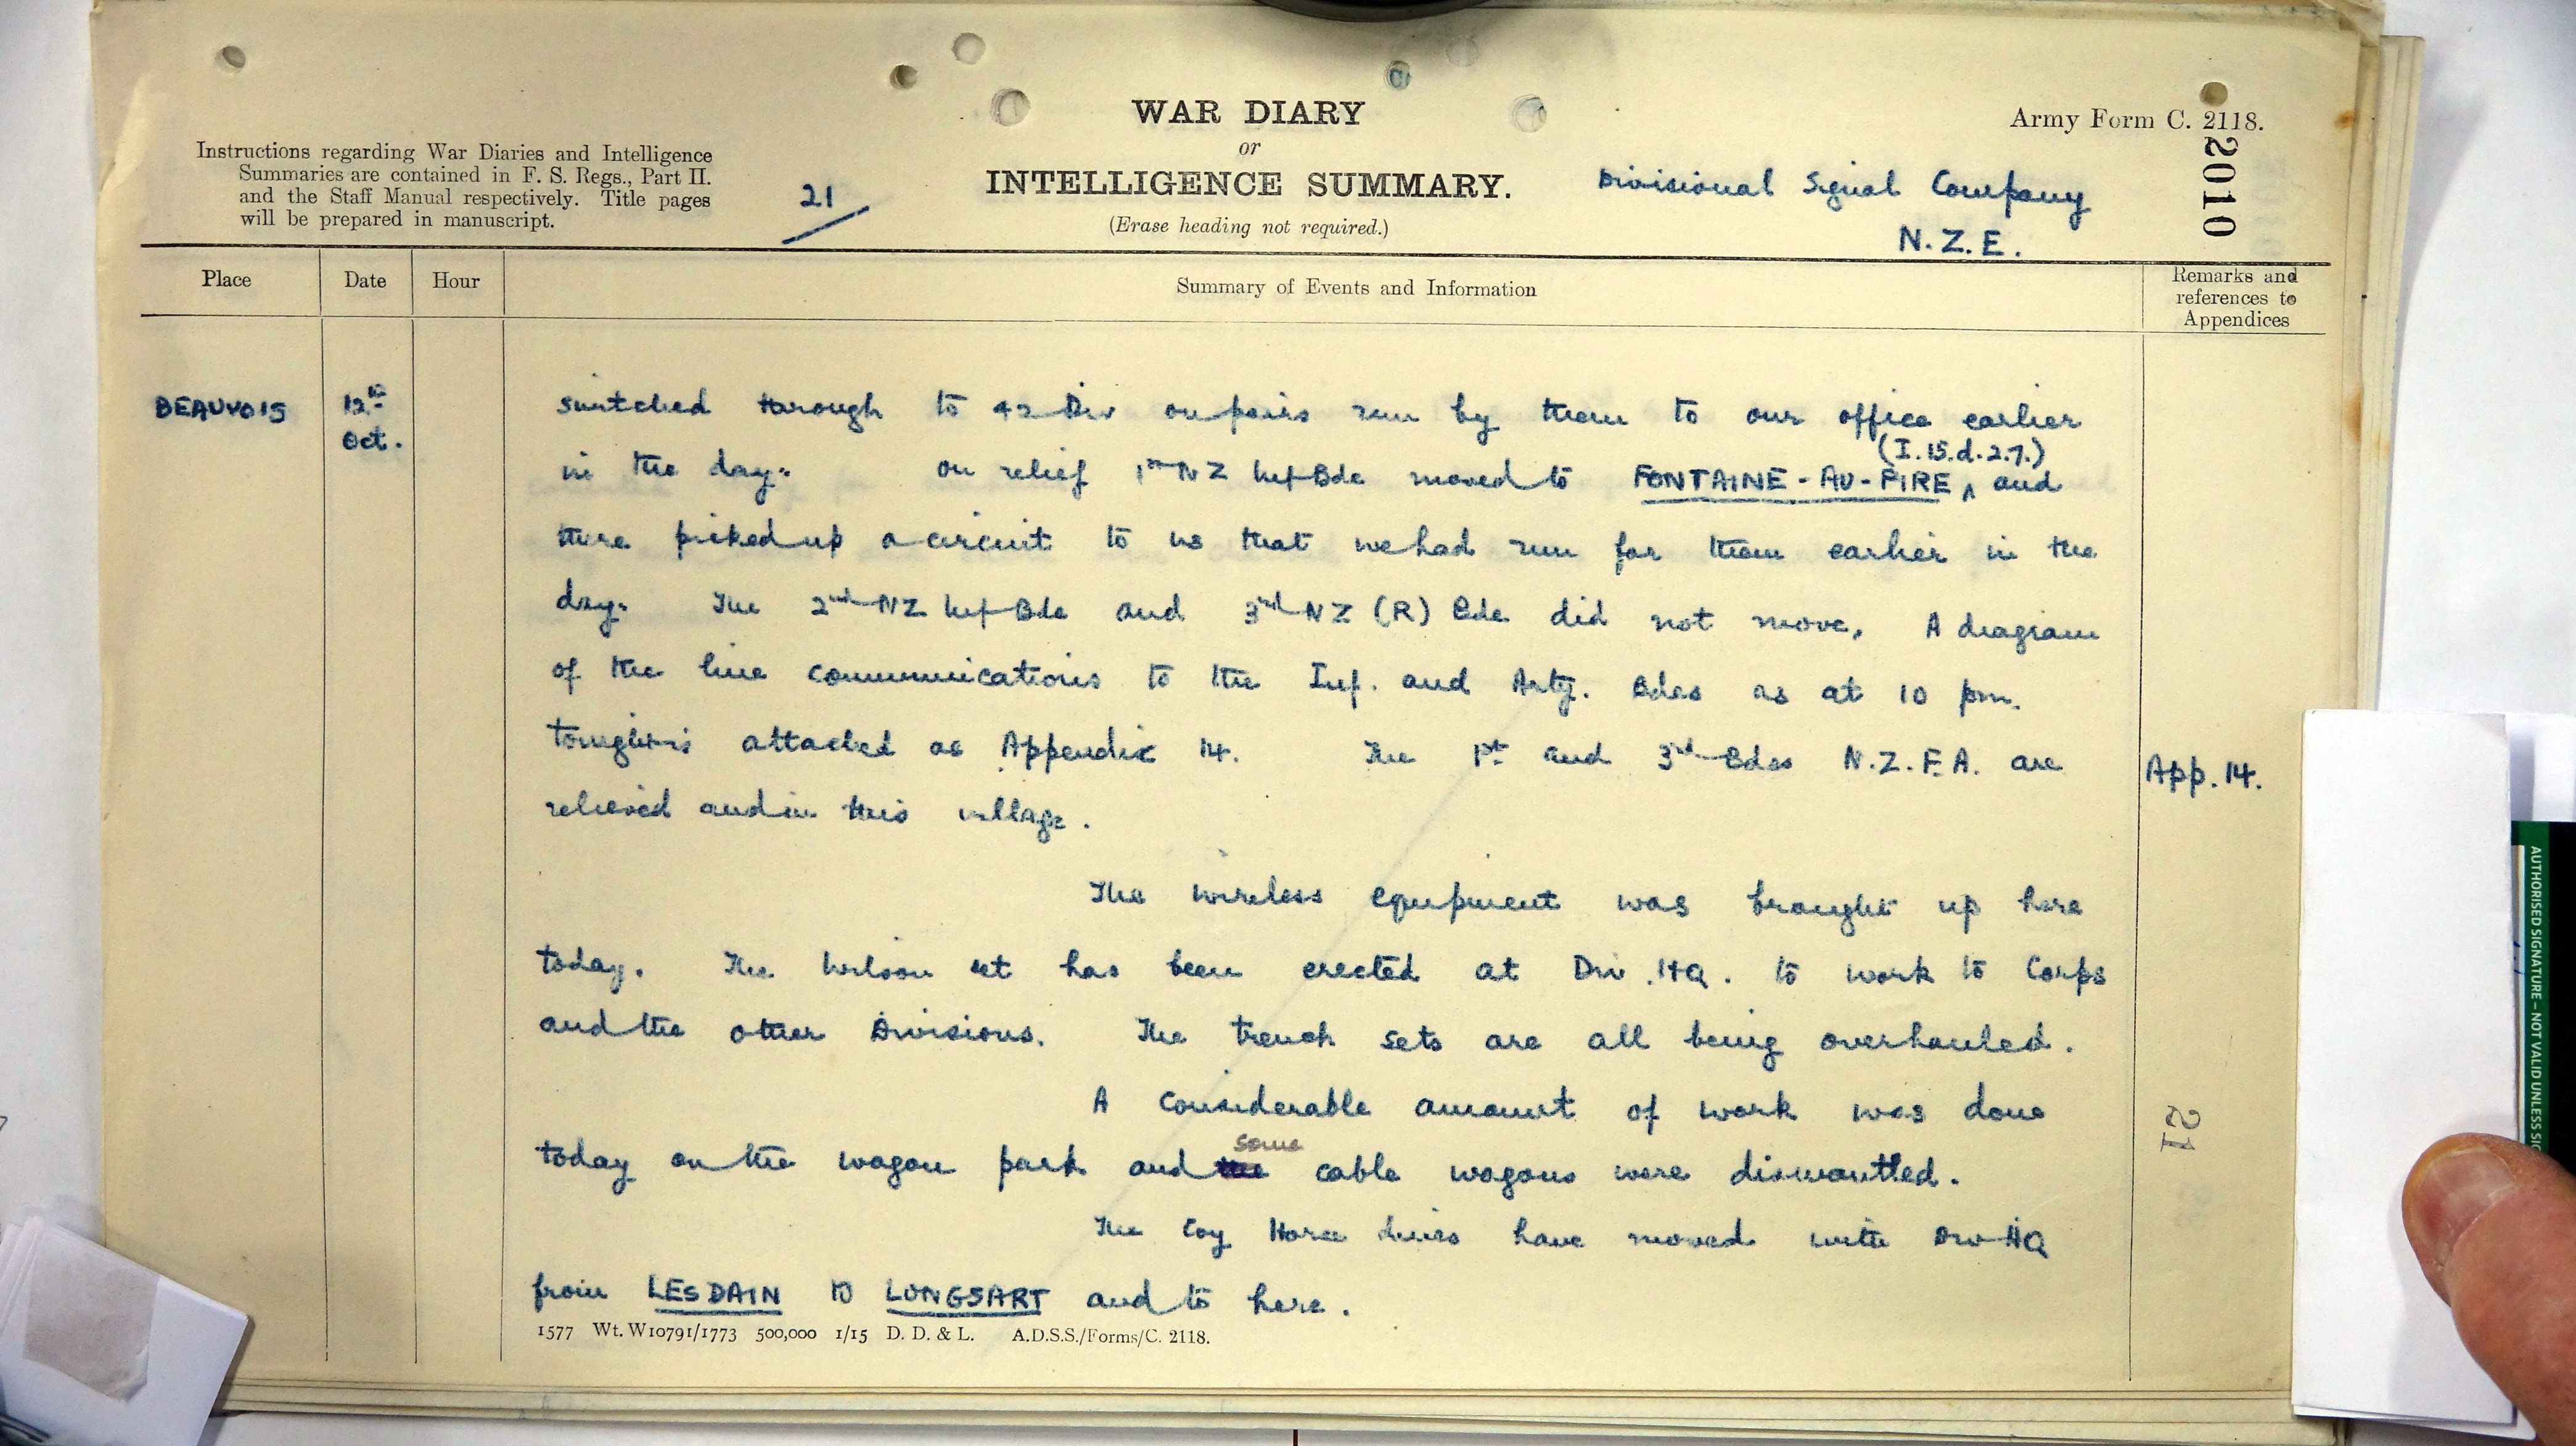 WAR DIARY
or
INTELLIGENCE SUMMARY.
(Erase heading not required.)
Army Form C. 2118.
2010
Instructions regarding War Diaries and Intelligence
Summaries are contained in F. S. Regs., Part II.
and the Staff Manual respectively. Title pages
will be prepared in manuscript.
21
Divisional Signal Company
N.Z.E.
Place Date Hour Summary of Events and Information Remarks and
references to
Appendices
BEAUVOIS 12th
Oct.
switched through to 42 Div on pairs run by them to our office earlier
(I.15.d.2.7.)
in the day. On relief 1st NZ Inf Bde moved to FONTAINE-AU-PIRE, and
there picked up a circuit to us that we had run for them earlier in the
day. The 2nd NZ Inf Bde and 3rd NZ (R) Bde did not move. A diagram
of the line communications to the Inf. and Arty. Bdes as at 10 pm.
tonight is attached as Appendix 14. The 1st and 3rd Bdes N.Z.F.A. are
App. 14.
relieved and in this village.
The wireless equipment was brought up here
today. The Wilson set has been erected at Div. HQ. to work to Corps
and the other Divisions. The trench sets are all being overhauled.
A considerable amount of work was done
some
today on the wagon park and the cable wagons were dismantled.
The Coy Horse lines have moved with Div HQ
from LESDAIN to LONGSART and to here.
1577 Wt. W10791/1773 500,000 1/15 D. D. & L. A.D.S.S./Forms/C. 2118.
21
AUTHORISED SIGNATURE – NOT VALID UNLESS SIG